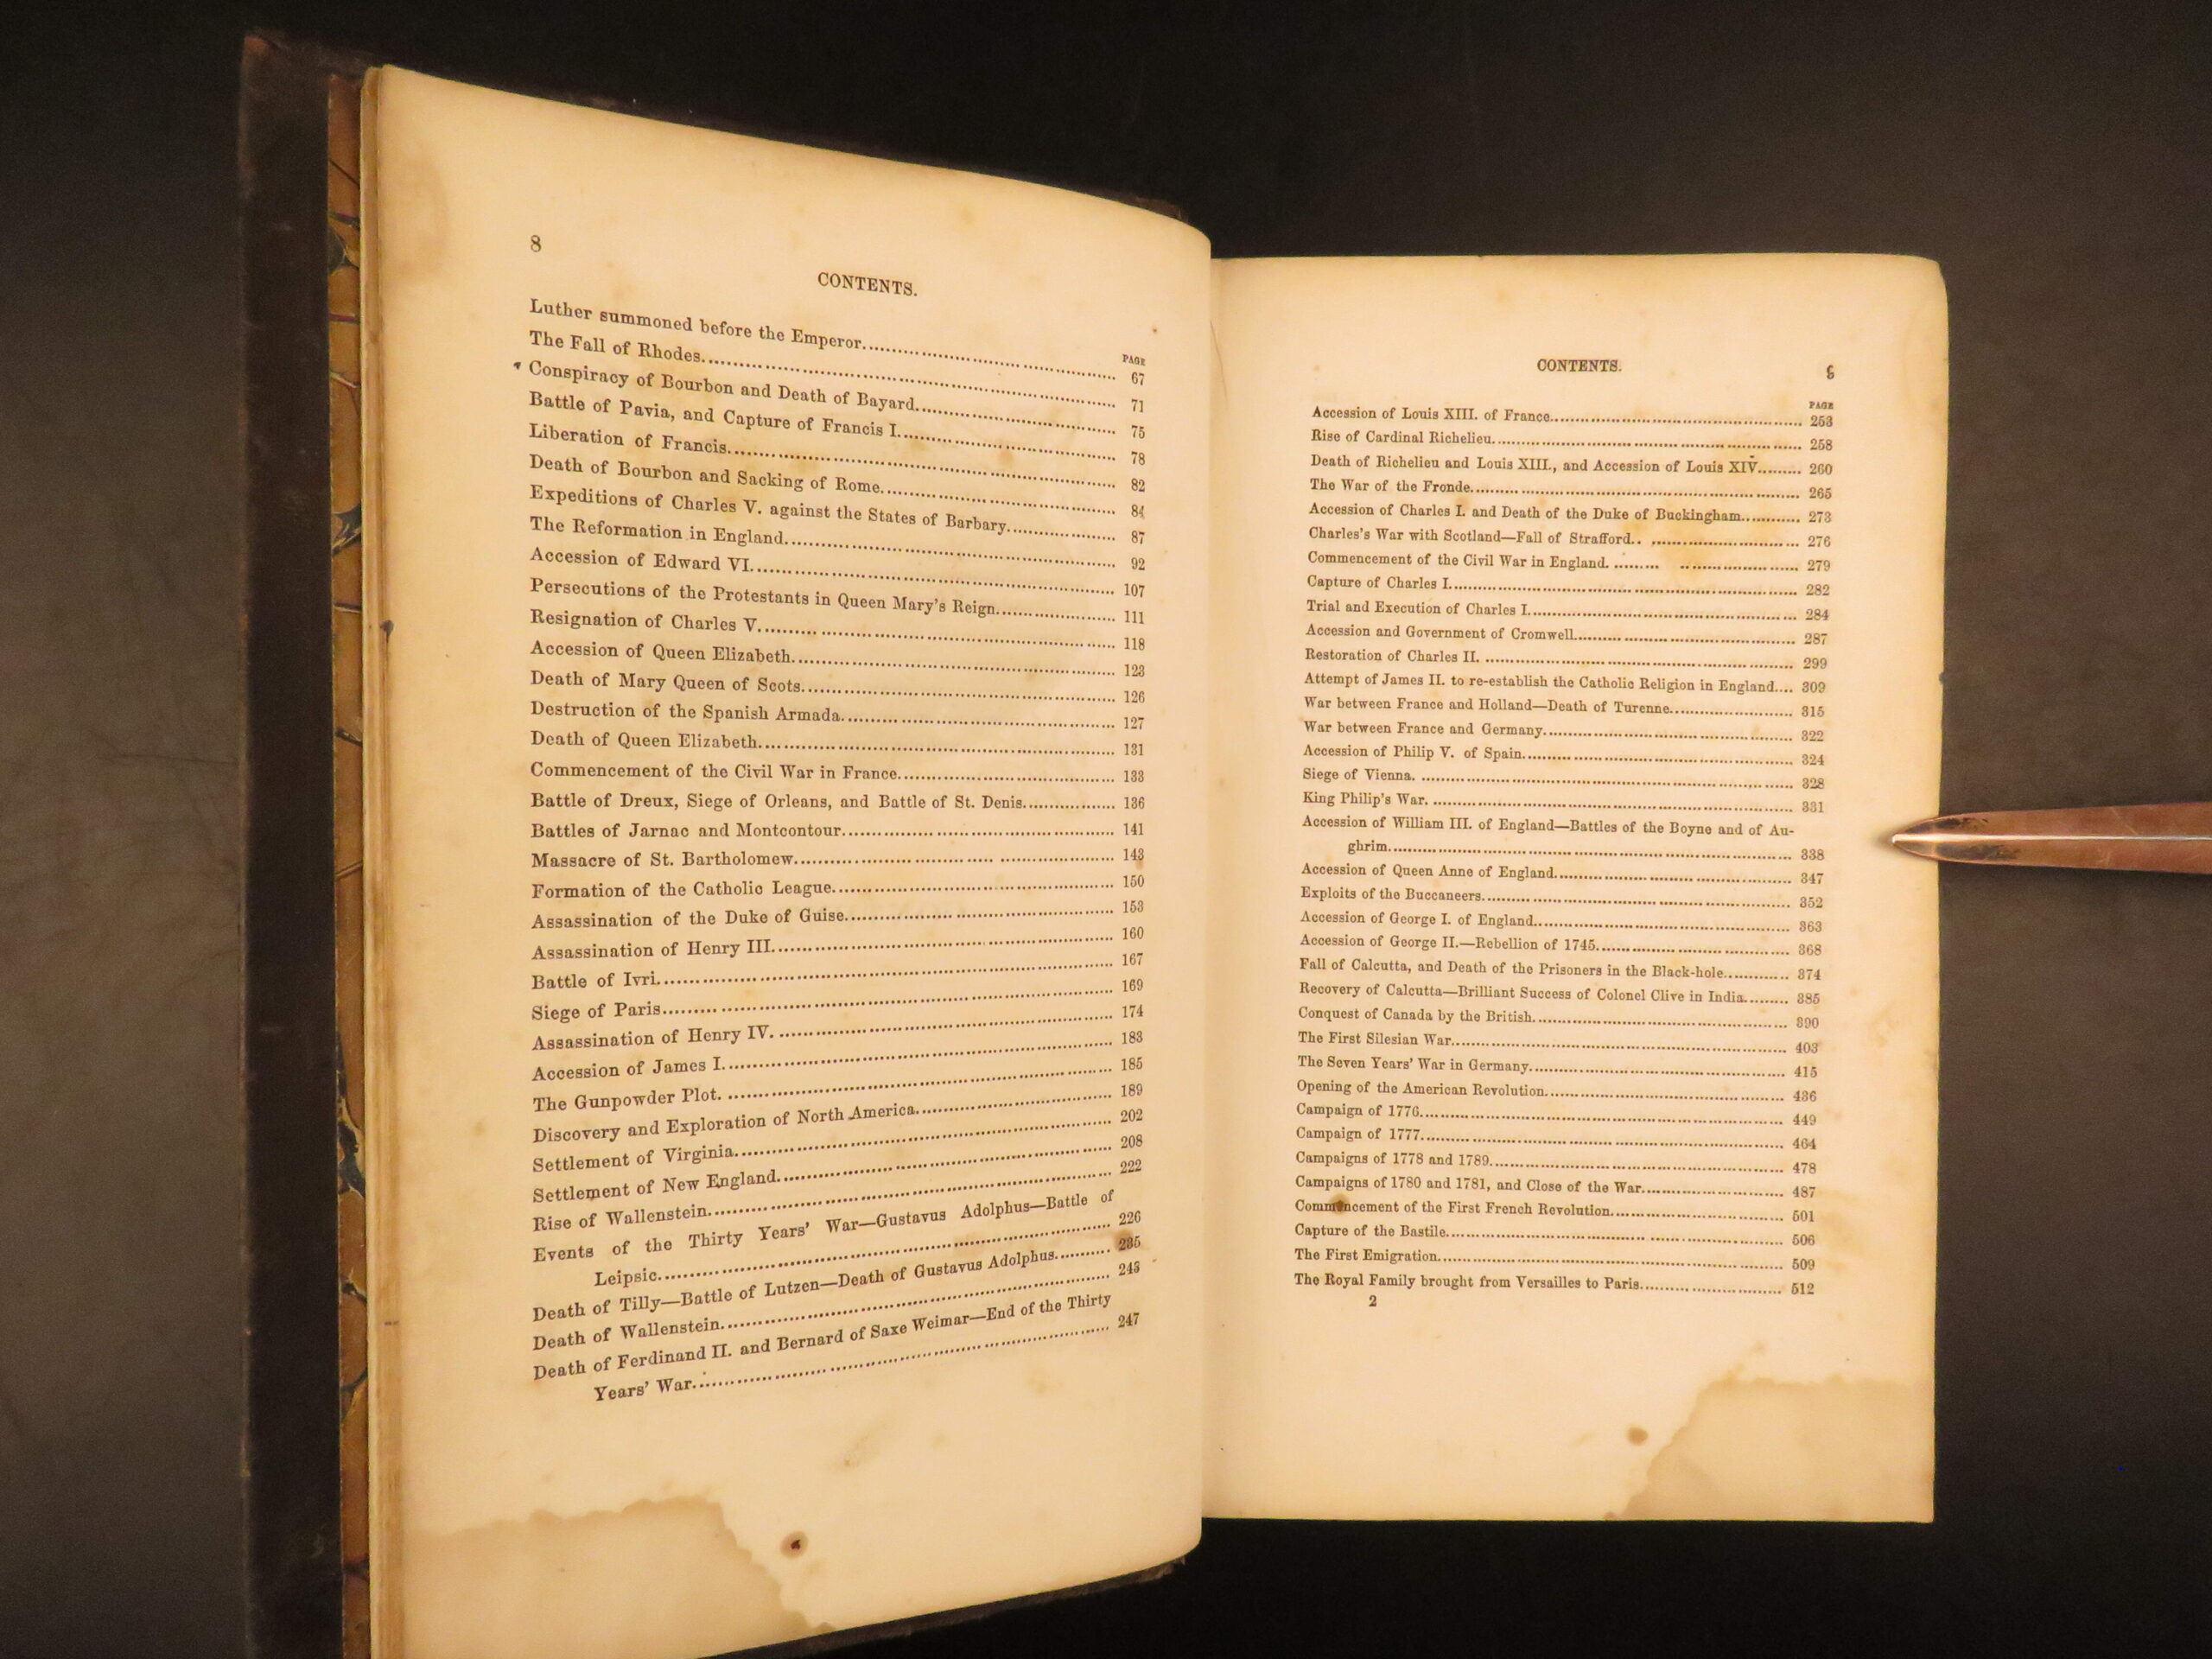 8
CONTENTS.
PAGE
Luther summoned before the Emperor........ 67
The Fall of Rhodes........ 71
Conspiracy of Bourbon and Death of Bayard........ 75
Battle of Pavia, and Capture of Francis I........ 78
Liberation of Francis........ 82
Death of Bourbon and Sacking of Rome........ 84
Expeditions of Charles V. against the States of Barbary........ 87
The Reformation in England........ 92
Accession of Edward VI........ 107
Persecutions of the Protestants in Queen Mary's Reign........ 111
Resignation of Charles V........ 118
Accession of Queen Elizabeth........ 123
Death of Mary Queen of Scots........ 126
Destruction of the Spanish Armada........ 127
Death of Queen Elizabeth........ 131
Commencement of the Civil War in France........ 133
Battle of Dreux, Siege of Orleans, and Battle of St. Denis........ 136
Battles of Jarnac and Montcontour........ 141
Massacre of St. Bartholomew........ 143
Formation of the Catholic League........ 150
Assassination of the Duke of Guise........ 153
Assassination of Henry III........ 160
Battle of Ivri........ 167
Siege of Paris........ 169
Assassination of Henry IV. ........ 174
Accession of James I........ 183
The Gunpowder Plot. ........ 185
Discovery and Exploration of North America........ 189
Settlement of Virginia........ 202
Settlement of New England........ 208
Rise of Wallenstein........ 222
Events of the Thirty Years' War—Gustavus Adolphus—Battle of
Leipsic........ 226
Death of Tilly—Battle of Lutzen—Death of Gustavus Adolphus........ 235
Death of Wallenstein........ 243
Death of Ferdinand II. and Bernard of Saxe Weimar—End of the Thirty
Years' War........ 247
CONTENTS.
PAGE
Accession of Louis XIII. of France........ 253
Rise of Cardinal Richelieu........ 258
Death of Richelieu and Louis XIII., and Accession of Louis XIV........ 260
The War of the Fronde........ 265
Accession of Charles I. and Death of the Duke of Buckingham........ 273
Charles's War with Scotland—Fall of Strafford........ 276
Commencement of the Civil War in England. ........ 279
Capture of Charles I........ 282
Trial and Execution of Charles I........ 284
Accession and Government of Cromwell........ 287
Restoration of Charles II. ........ 299
Attempt of James II. to re-establish the Catholic Religion in England.... 309
War between France and Holland—Death of Turenne........ 315
War between France and Germany........ 322
Accession of Philip V. of Spain........ 324
Siege of Vienna. ........ 328
King Philip's War. ........ 331
Accession of William III. of England—Battles of the Boyne and of Au-
ghrim........ 338
Accession of Queen Anne of England........ 347
Exploits of the Buccaneers........ 352
Accession of George I. of England........ 363
Accession of George II.—Rebellion of 1745........ 368
Fall of Calcutta, and Death of the Prisoners in the Black-hole........ 374
Recovery of Calcutta—Brilliant Success of Colonel Clive in India........ 385
Conquest of Canada by the British........ 390
The First Silesian War........ 403
The Seven Years' War in Germany........ 415
Opening of the American Revolution........ 436
Campaign of 1776........ 449
Campaign of 1777........ 464
Campaigns of 1778 and 1789........ 478
Campaigns of 1780 and 1781, and Close of the War........ 487
Commencement of the First French Revolution........ 501
Capture of the Bastile........ 506
The First Emigration........ 509
The Royal Family brought from Versailles to Paris........ 512
2